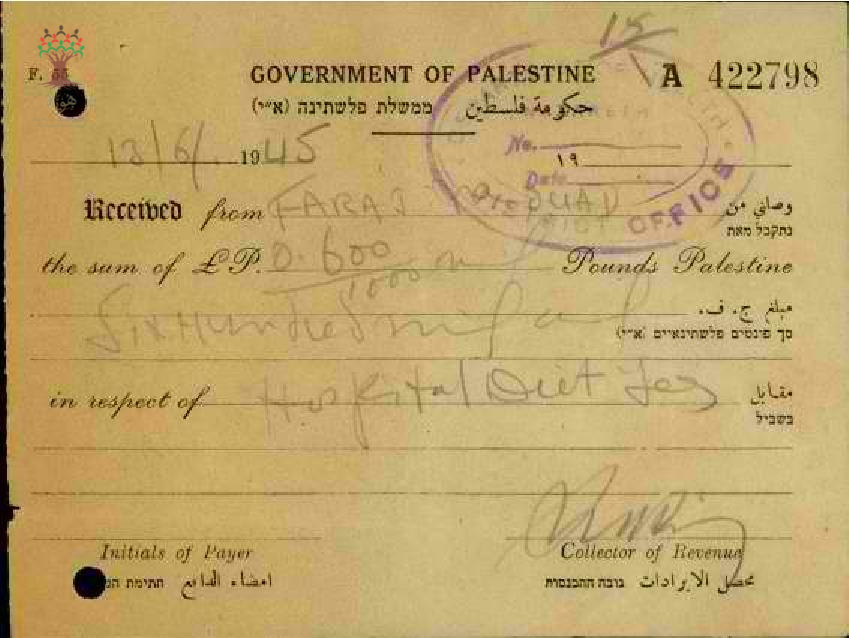 15
F. 55
GOVERNMENT OF PALESTINE A 422798
ממשלת פלשתינה (א״י) حكومة فلسطين
No.
13/6/ 1945 ١٩
Date
DISTRICT OFFICE
Received from FARAJ FOUAD وصلني من
נתקבל מאת
the sum of £P. 0. 600/1000 Pounds Palestine
مبلغ ج. ف.
Six Hundred mil only
סך פונטים פלשתינאיים (א״י)
in respect of Hospital Diet Fees مقابل
בשביל
Initials of Payer Collector of Revenue
חתימת امضاء الدافع גובה ההכנסות محصل الايرادات